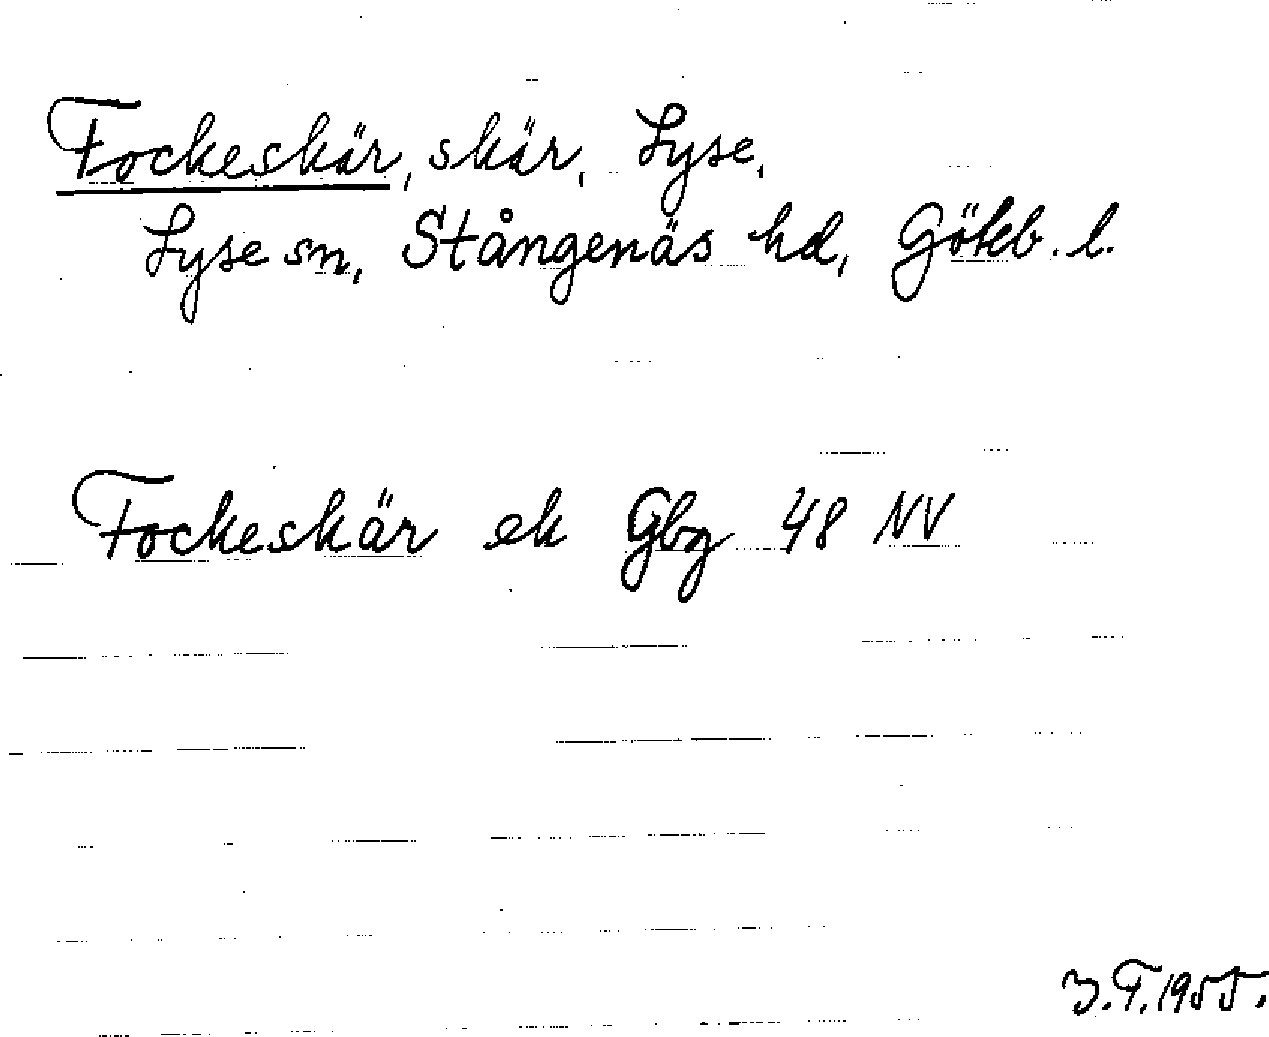 Fockeskär, skär, Lyse,
Lyse sn, Stångenäs hd, Göteb. l.
Fockeskär ek Gbg 48 NV
J.T. 1955.